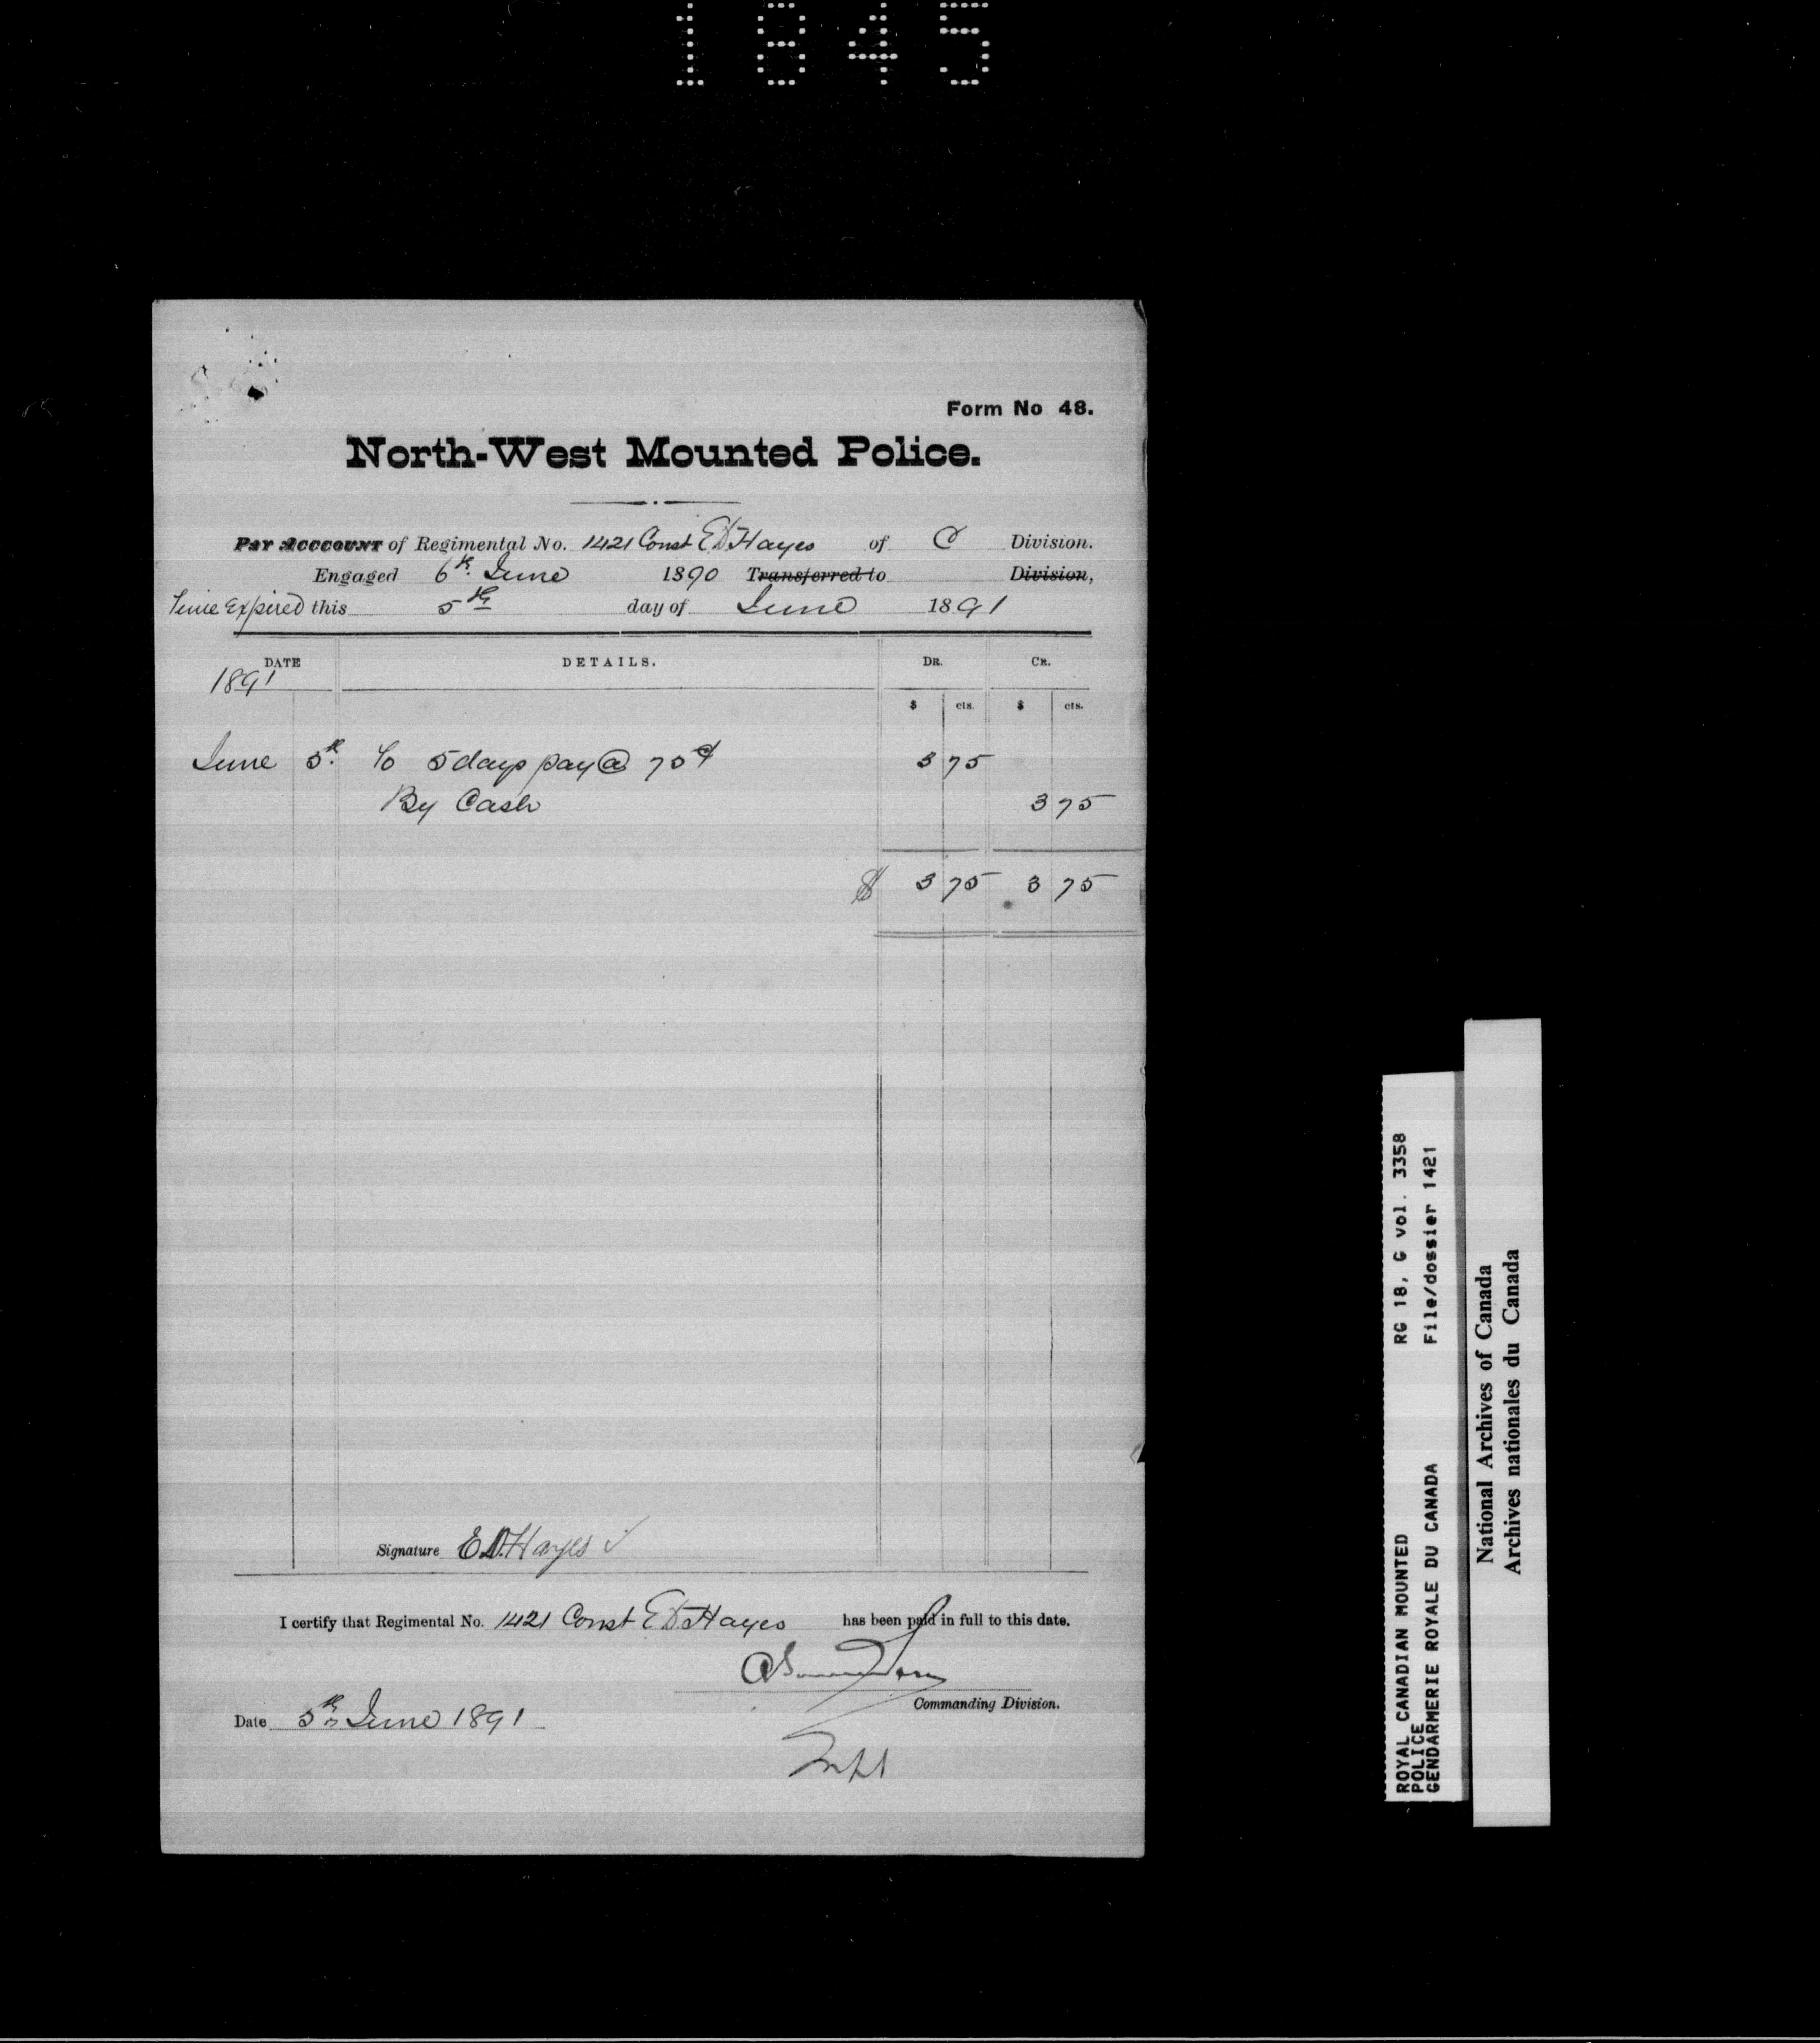 1845
Form No 48.
North-West Mounted Police.
Pay Acccount of Regimental No. 1421 Const E D Hayes of C Division.
Engaged 6th. June 1890 Transferred to Division,
Time Expired this 5th day of June 1891
DATE DETAILS. DR. CR.
1891
$ cts. $ cts.
June 5th. To 5 days pay @ 75¢ 3 75
By Cash 3 75
$ 3 75 3 75
Signature E.D. Hayes
I certify that Regimental No. 1421 Const E D Hayes has been paid in full to this date.
Commanding Division.
Date 5th June 1891
ROYAL CANADIAN MOUNTED RG 18, G vol. 3358
POLICE
GENDARMERIE ROYALE DU CANADA File/dossier 1421
National Archives of Canada
Archives nationales du Canada